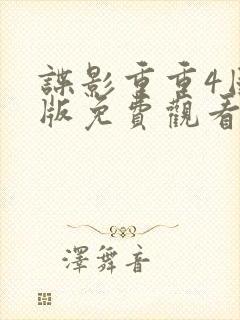 諜影重重4
版免費觀看
澤舞音